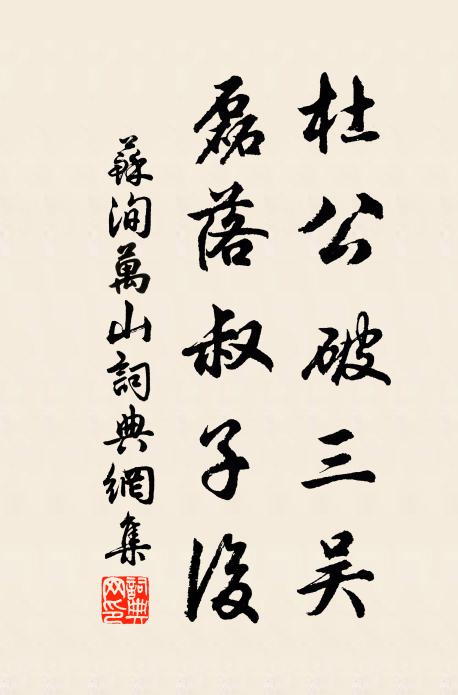 杜公破三吴
磊落叔子後
蘇洵萬山詞典網集
詞典網印